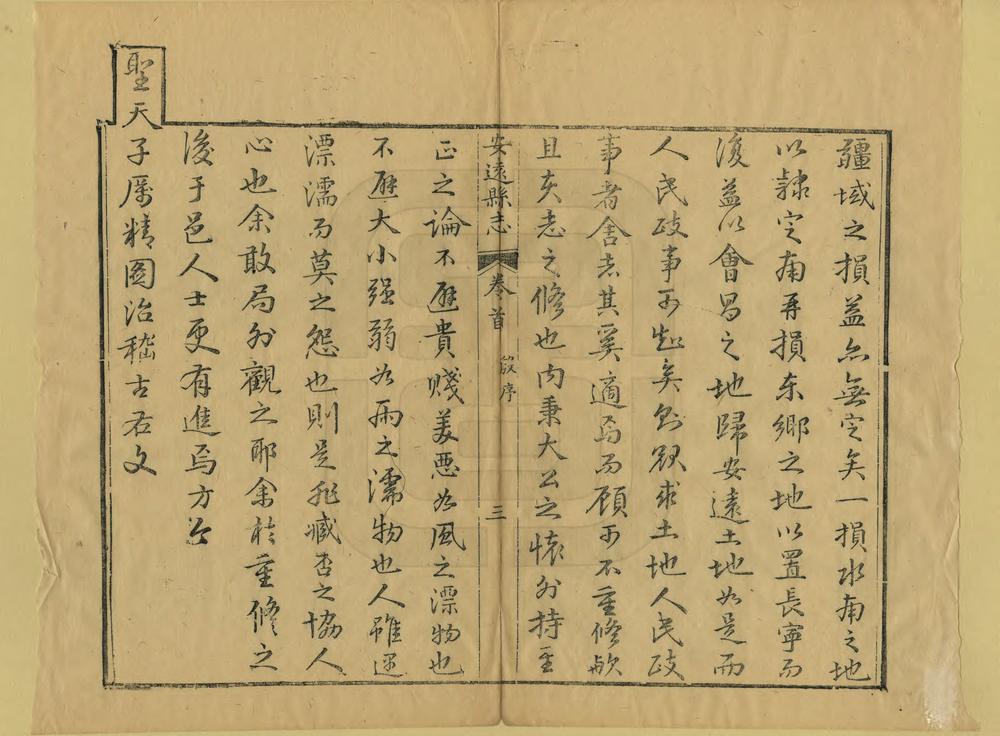 疆域之損益亦無定矣一損水南之地
以隷定南再損東鄉之地以置長寧而
後益以會昌之地歸安遠土地如是而
人民政事可知矣則欲求土地人民政
事者舍志其奚適焉而顧可不重修歟
且夫志之修也內秉大公之懷外持至
安遠縣志 卷首 敘序 三
正之論不避貴賤美惡如風之漂物也
不避大小强弱如雨之濡物也人雖遇
漂濡而莫之怨也則是非臧否之協人
心也余敢局外觀之耶余於重修之
後于邑人士更有進焉方今
聖天子厲精圖治稽古右文